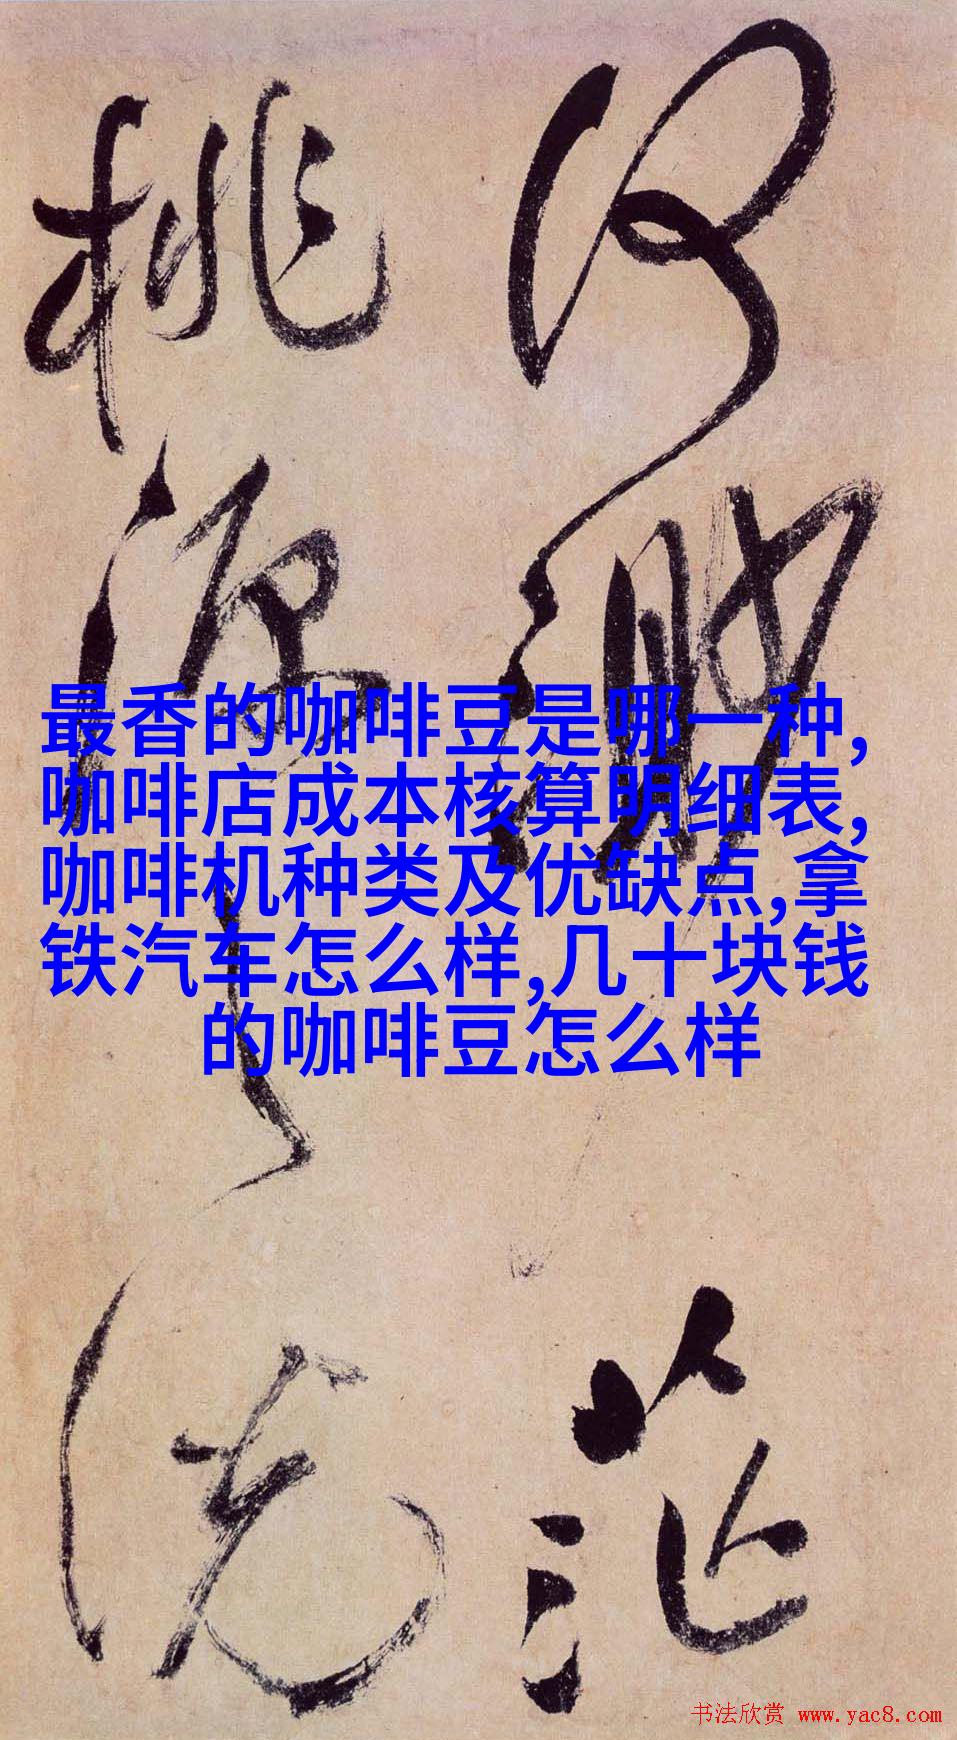 何渺
茫
桃源
之
洗
最香的咖啡豆是哪一种,
咖啡店成本核算明细表,
咖啡机种类及优缺点,拿
铁汽车怎么样,几十块钱
的咖啡豆怎么样
书法欣赏 www.yac8.com